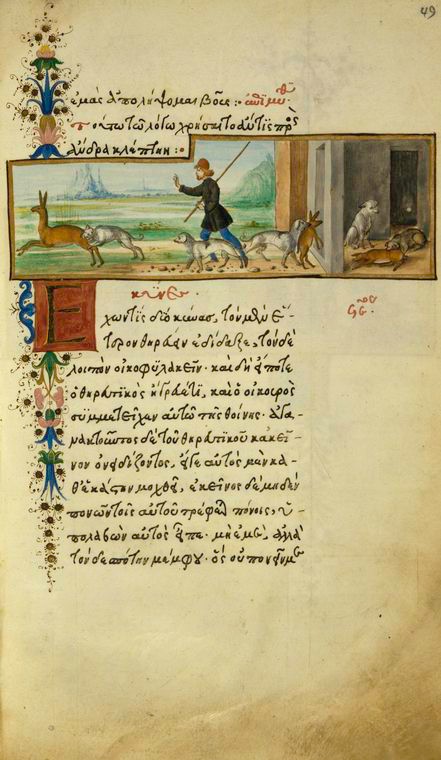 49
ἐμὰς ἀπολήψομαι βόας : ἐπιμύθ
Τούτω τῶ λόγω χρήσαιτο ἄν τις πρὸς
ἄνδρα κλέπτην :
κύνες
Ἔχων τις δύο κύνας, τὸν μὲν ἕ-
τερον θηρεύειν ἐδίδαξε, τὸν δὲ
λοιπὸν οἰκοφυλακεῖν· καὶ δὴ εἴποτε
ὁ θηρευτικὸς ἤγρευέ τι, καὶ ὁ οἰκουρὸς
συμμετεῖχεν αὐτῶ τῆς θοίνης· ἀγα-
νακτοῦντος δὲ τοῦ θηρευτικοῦ κἀκεῖ-
νον ὀνειδίζοντος, εἴγε αὐτὸς μὲν κα-
θ' ἑκάστην μοχθεῖ, ἐκεῖνος δὲ μηδὲν
πονῶν τοῖς αὐτοῦ τρέφεται πόνοις, ὑ-
πολαβὼν αὐτὸς εἶπε· μὴ ἐμὲ, ἀλλὰ
τὸν δεσπότην μέμφου· ὃς οὐ πονεῖν με